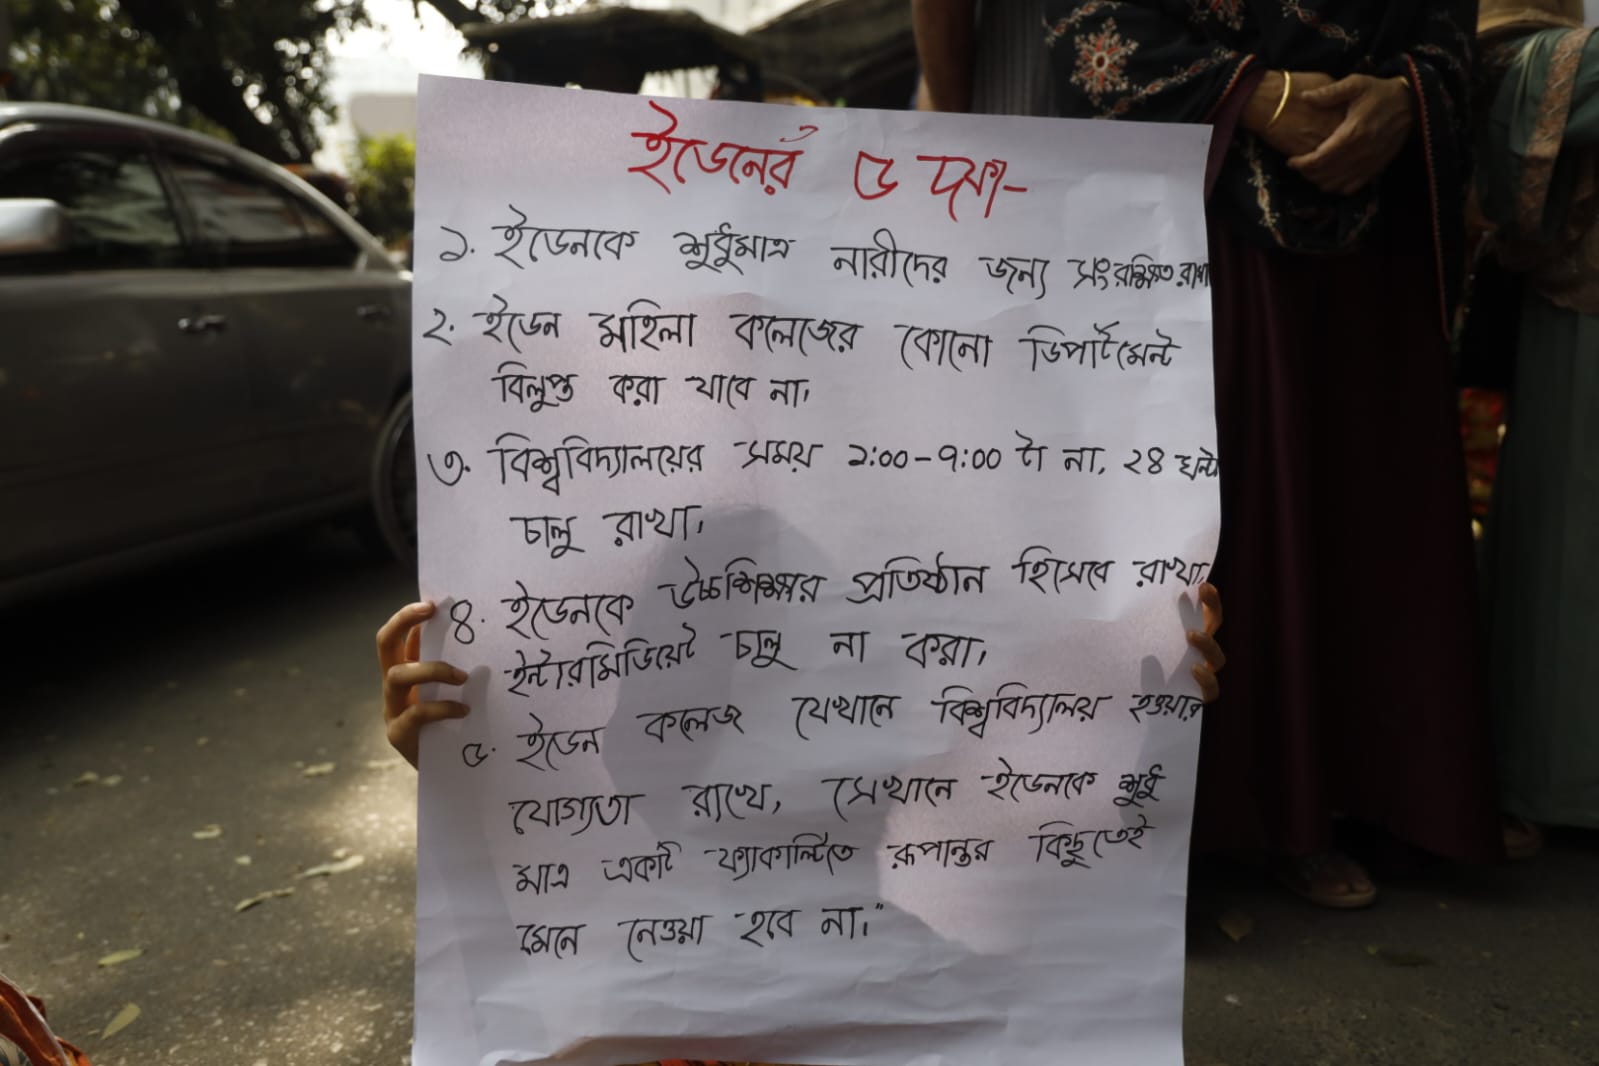 ইডেনের ৫ দফা-
১. ইডেনকে শুধুমাত্র নারীদের জন্য সংরক্ষিত রাখা
২. ইডেন মহিলা কলেজের কোনো ডিপার্টমেন্ট
বিলুপ্ত করা যাবে না।
৩. বিশ্ববিদ্যালয়ের সময় ১:০০-৭:০০ টা না, ২৪ ঘন্টা
চালু রাখা।
৪. ইডেনকে উচ্চশিক্ষার প্রতিষ্ঠান হিসেবে রাখা,
ইন্টারমিডিয়েট চালু না করা।
৫. ইডেন কলেজ যেখানে বিশ্ববিদ্যালয় হওয়ার
যোগ্যতা রাখে, সেখানে ইডেনকে শুধু
মাত্র একটি ফ্যাকাল্টিতে রূপান্তর কিছুতেই
মেনে নেওয়া হবে না।"